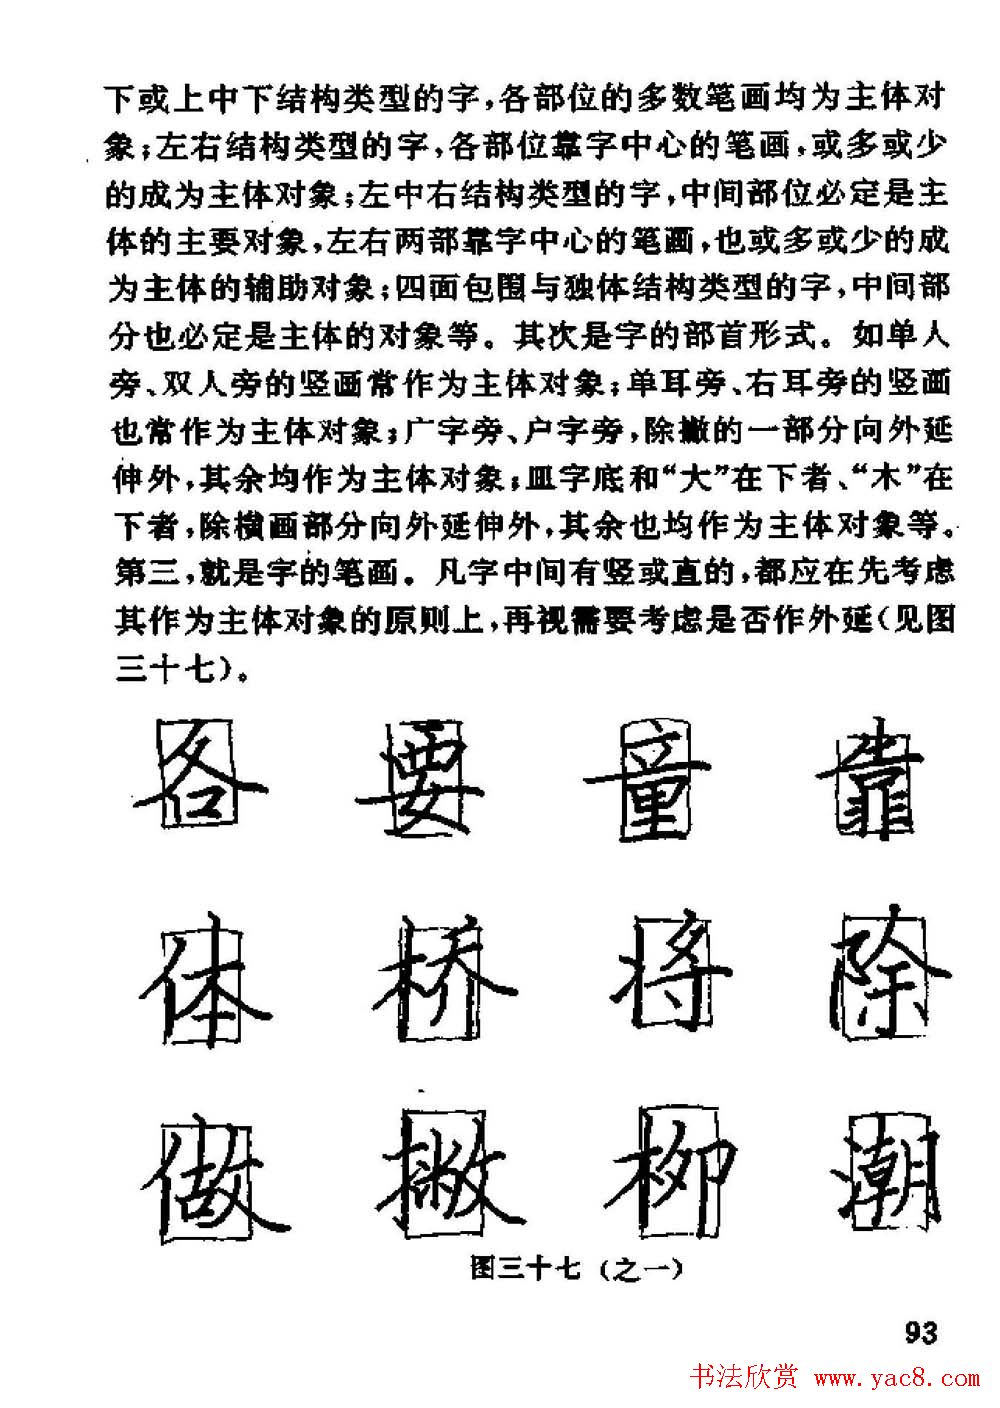 下或上中下结构类型的字，各部位的多数笔画均为主体对
象；左右结构类型的字，各部位靠字中心的笔画，或多或少
的成为主体对象；左中右结构类型的字，中间部位必定是主
体的主要对象，左右两部靠字中心的笔画，也或多或少的成
为主体的辅助对象；四面包围与独体结构类型的字，中间部
分也必定是主体的对象等。其次是字的部首形式。如单人
旁、双人旁的竖画常作为主体对象；单耳旁、右耳旁的竖画
也常作为主体对象；广字旁、户字旁，除撇的一部分向外延
伸外，其余均作为主体对象；皿字底和“大”在下者、“木”在
下者，除横画部分向外延伸外，其余也均作为主体对象等。
第三，就是字的笔画。凡字中间有竖或直的，都应在先考虑
其作为主体对象的原则上，再视需要考虑是否作外延（见图
三十七）。
各 要 童 靠
体 桥 将 除
做 撇 柳 潮
图三十七（之一）
93
书法欣赏 www.yac8.com